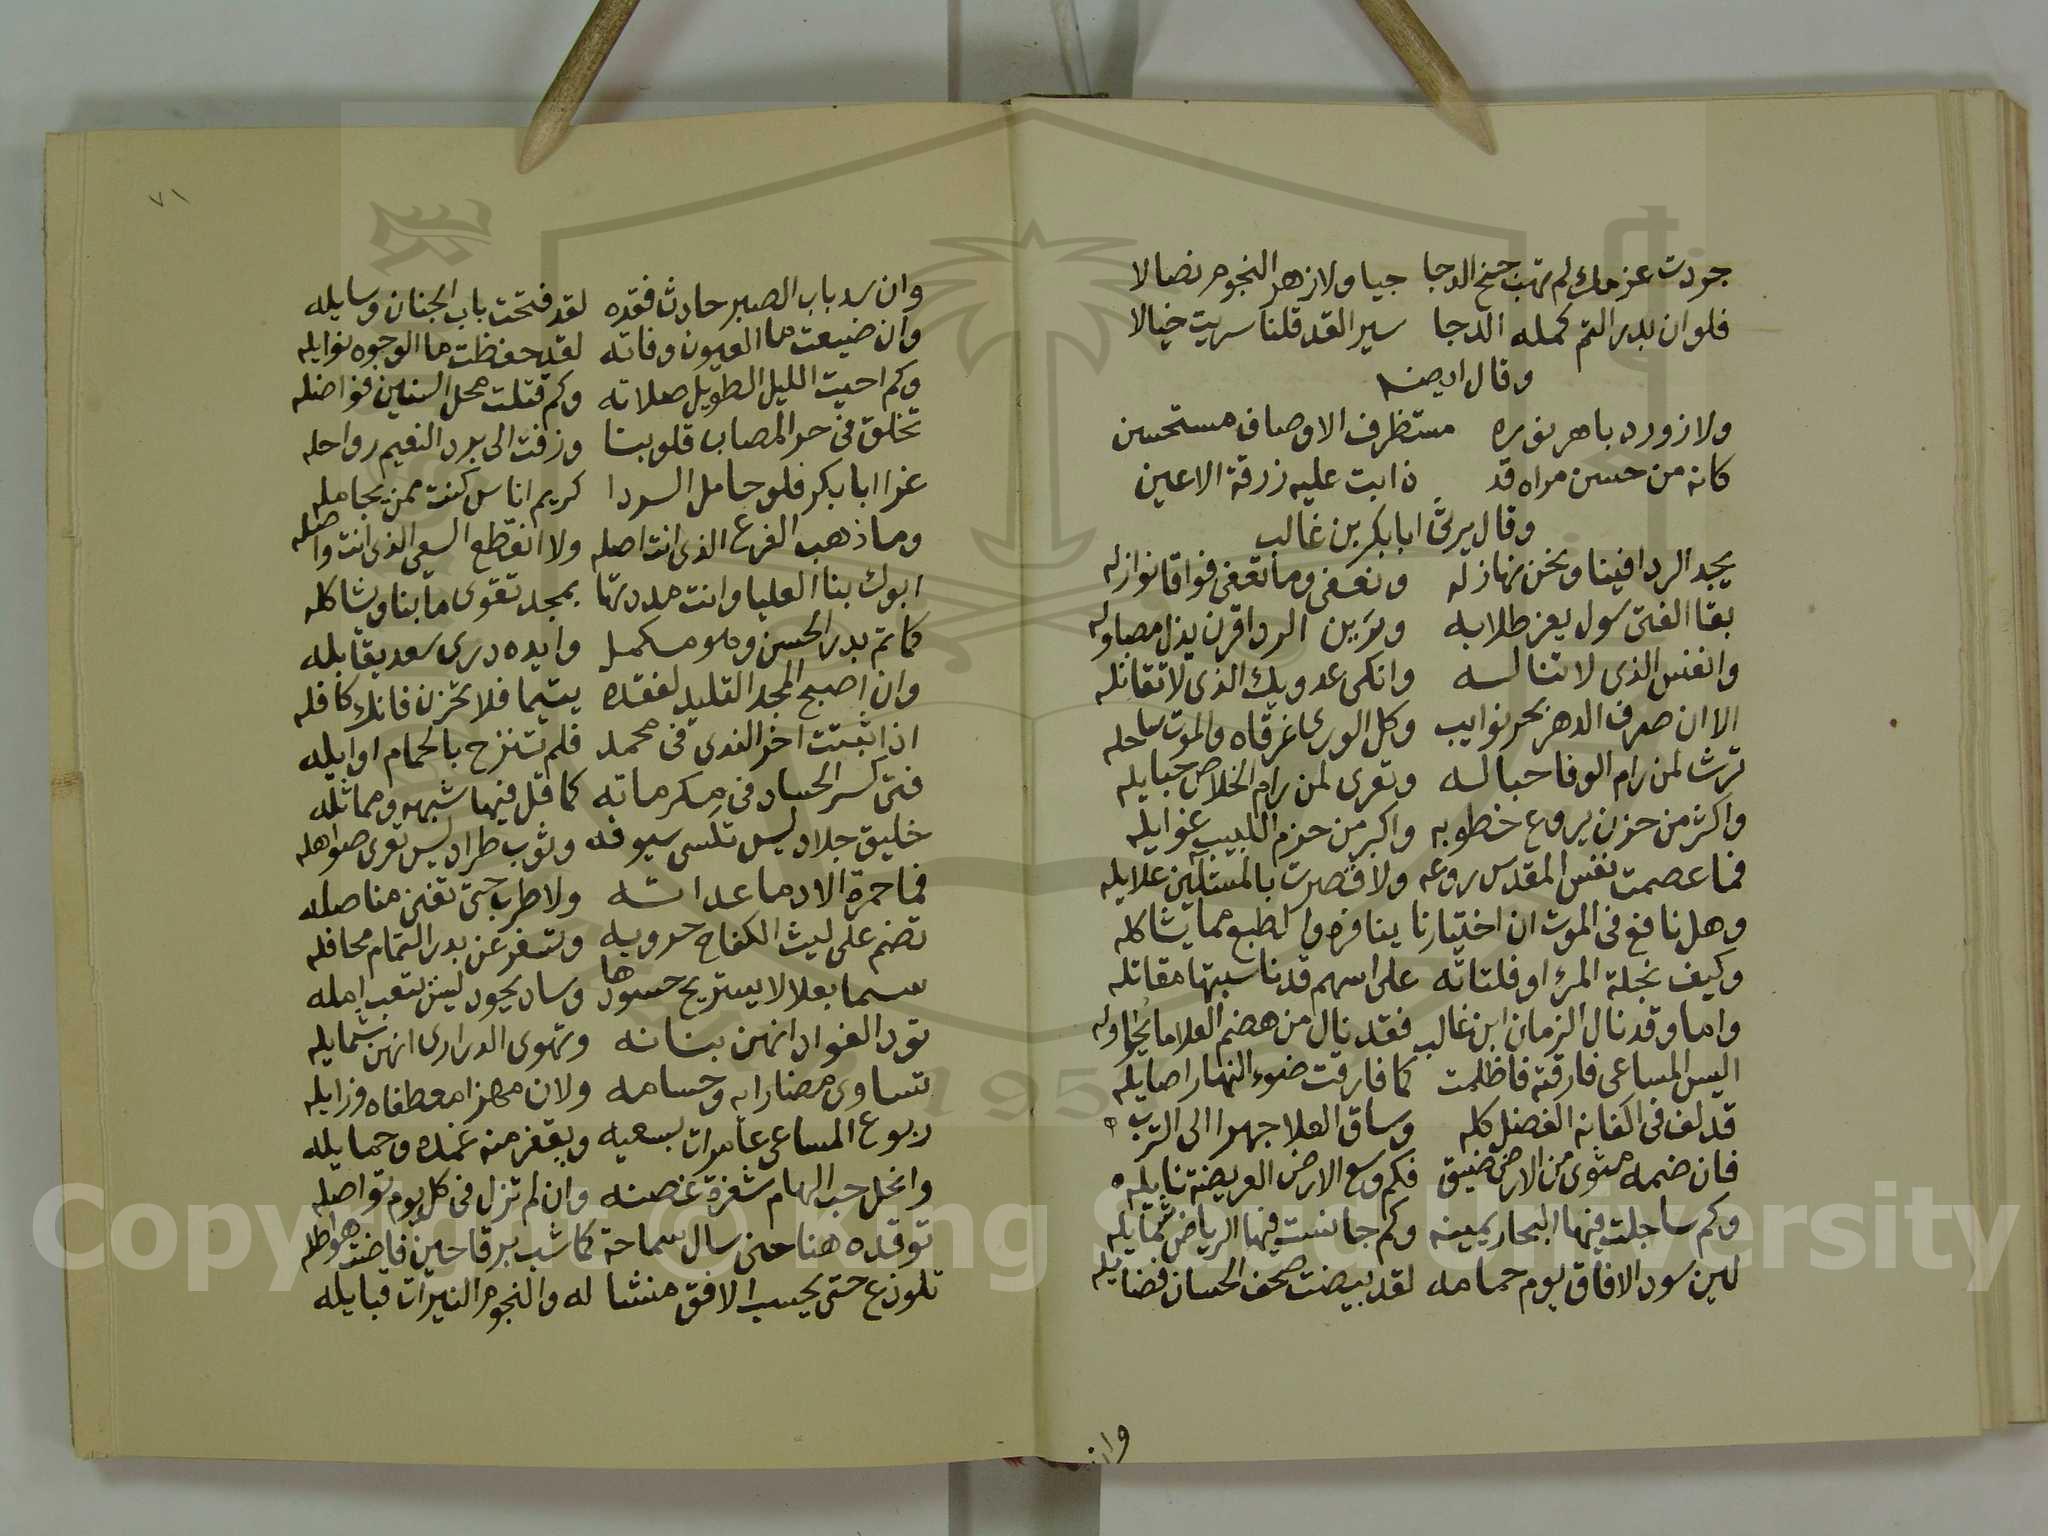 جردت عزمك لم تهب جنح الدجا جيا ولا زهر النجوم نصالا
فلو ان بدر التم كمله الدجا سير القد قلنا سريت خيالا
وقال ايضه
ولازورد باهر نوره مستظرف الاوصاف مستحسن
كانه من حسن مراه قد ذابت عليه زرقة الاعين
وقال يرثى ابا بكر بن غالب
يجد الردا فينا ونحن نهازله ونغفى وما تغفى فواقا نوازله
بقا الفتى سول يعز طلابه وريب الردا قرن يذل مصاوله
وانفس الذى لا تناله وانكى عدويك الذى لا تقاتله
الا ان صرف الدهر بحر نوايب وكل الورى غرقاه والموت ساحله
ترث لمن رام الوفا حباله وتعرى لمن رام الخلاص حبايله
واكثر من حزن يروع خطوبه واكبر من حزم اللبيب غوايله
فما عصمت نفس المقدس روعه ولا قصرت بالمستكين علايله
وهل نافع فى الموت ان اختيارنا ينافره والطبع مما يشاكله
وكيف نجاة المرء او فلتاته على اسهم قد ناسبتها مقاتله
واما وقد نال الزمان ابن غالب فقد نال من هضم العلا ما يحاوله
اليس المساعى فارقته فاظلمت كما فارقت ضوء النهار اصايله
قد لف فى اكفانه الفضل كله وساق العلا جهرا الى الترب
فان ضمه مثوى من الارض ضيق فكم وسع الارض العريضة نايله
وكم ساجلت فيها البحار يمينه وكم جانست فيها الرياض شمايله
لين سود الافاق يوم حمامه لقد بيضت صحف الحسان فضايله
٧١
وان سد باب الصبر حادث فقده لقد فتحت باب الجنان وسايله
وان ضيعت ما العيون وفاته لقد حفظت ما الوجوه نوايله
وكم احيت الليل الطويل صلاته وكم قتلت محل السنين فواضله
تخلق فى حر المصاب قلوبنا وزفت الى برد النعيم رواحله
عزا ابا بكر فلو جامل الردا كريم اناس كنت ممن يجامله
وما ذهب الفرع الذى انت اصله ولا انقطع السعى الذى انت واصله
ابوك بنا العليا وانت مددتها بمجد تقوى ما بنا ويشاكله
كما تم بدر الحسن وهو مكمل وايده درى سعد يقابله
وان اصبح المجد التليد لفقده يتيما فلا تحزن فانك كافله
اذا ثبتت اخر الندى فى محمد فلم تنزح بالحمام اوايله
فتى كسر الحساد فى مكرماته كما قل فيها شبهه ومماثله
خليق جلاد ليس تكسى سيوفه وثوب طراد ليس تعرى صواهله
فما حمرة الا دما عداته ولا طرب حتى تغنى مناصله
تضم على ليث الكفاح حروبه وتسفر عن بدر التمام محافله
سما بعلا لا يستريح حسودها وساد بجود ليس يتعب امله
تود الغواد انهن بنانه وتهوى الدرارى انهن شمايله
تساوى مضا رايه وحسامه ولان مهزا معطفاه وزايله
ربوع المساعى عامرات بسعيه ويقفر منه غمده وحمايله
وانحل حب الهام شفرة غصنه وان لم تزل فى كل يوم تواصله
توقده هنا حين سال سماحة كما شب برقا حين فاضت هواطله
تلوذ ع حتى يحسب الافق منشا له والنجوم النيرات قبايله
Copyright © King Saud University
1957